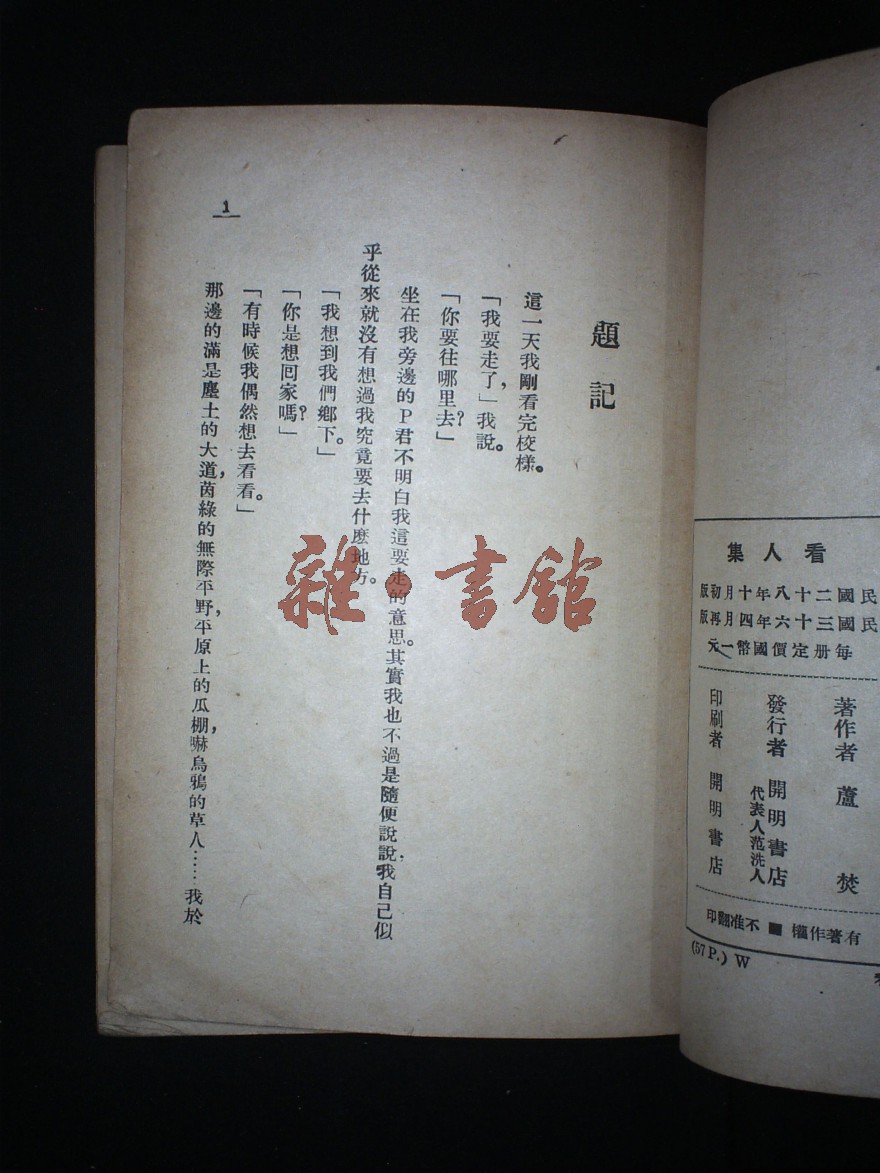 看人集
民國二十八年十月初版
民國三十六年四月再版
每册定價國幣一元
著作者 蘆焚
發行者 開明書店
代表人范洗人
印刷者 開明書店
有著作權■不准翻印
(57 P.) W
題記
這一天我剛看完校樣。
「我要走了，」我說。
「你要往哪里去？」
坐在我旁邊的P君不明白我這要走的意思。其實我也不過是隨便說說，我自己似
乎從來就沒有想過我究竟要去什麽地方。
「我想到我們鄉下。」
「你是想回家嗎？」
「有時候我偶然想去看看。」
那邊的滿是塵土的大道，茵綠的無際平野，平原上的瓜棚，嚇烏鴉的草人……我於
1
雜·書館